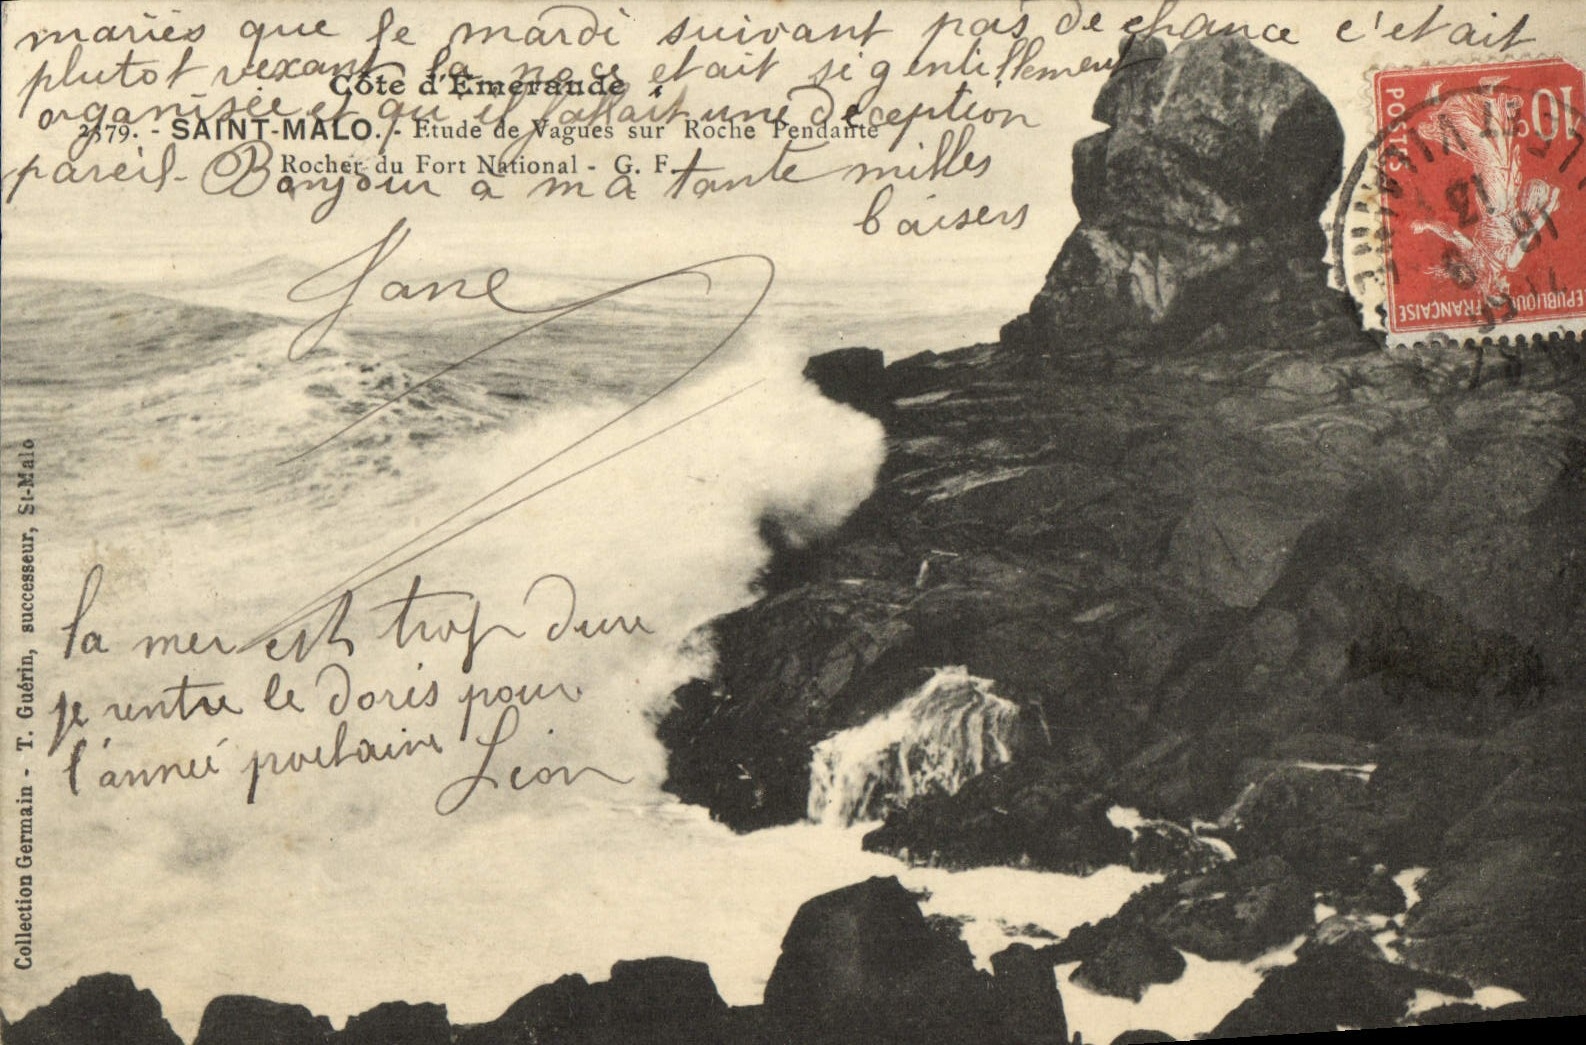 mariés que le mardi suivant pas de chance c'etait
plutot vexant la noce etait si gentillement
Côte d'Emeraude
organisée et qu'il fallait une deception
2379. - SAINT-MALO. - Etude de Vagues sur Roche Pendante
Rocher du Fort National - G. F.
pareil - Bonjour a ma tante milles
baisers
Jane
la mer est trop dure
je rentre le doris pour
l'année prochaine
Léon
Collection Germain - T. Guérin, successeur, St-Malo
10c
POSTES
REPUBLIQUE FRANÇAISE